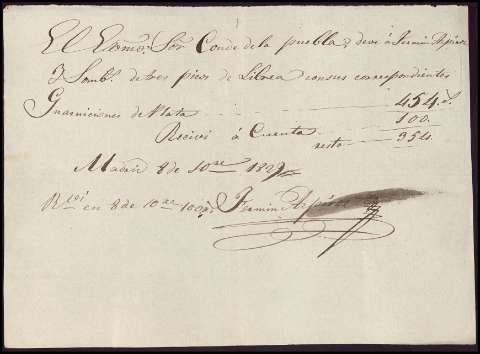 El Exmo. Sor. Conde de la puebla, deve à Fermin
3 Sombs. de tres picos de con sus correspondientes
Guarniciones de Plata 454 r.
Recivi à Cuenta 100.
resto 354.
Madrid 8 de 10re 1829
Rvi en 8 de 10re 100 rs Fermin